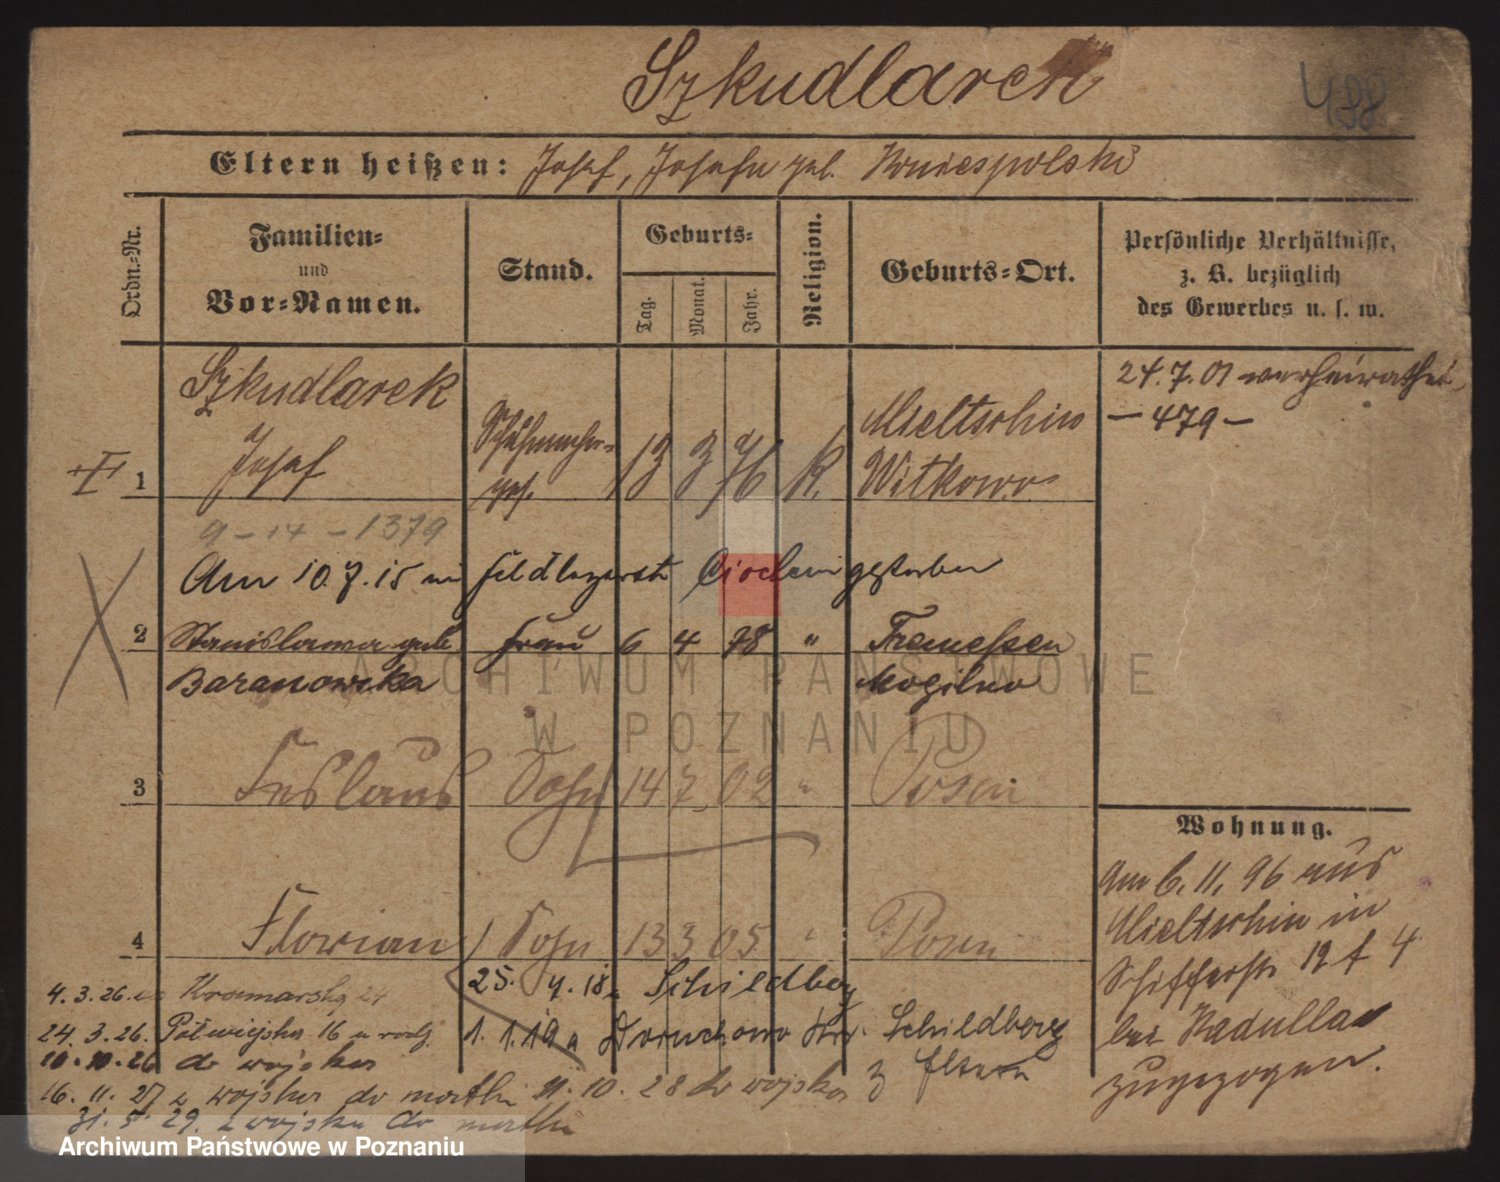 Szkudlarek
488
Eltern heißen: Josef, Josefa geb. Koniespolski
Ordn.-Nr.
Familien-
und
Vor-Namen.
Stand.
Geburts-
Tag.
Monat.
Jahr.
Religion.
Geburts-Ort.
Persönliche Verhältnisse,
z. B. bezüglich
des Gewerbes u. s. w.
24.7.01 verheirathet
— 479 —
Szkudlarek
Josef
Schuhmacher-
ges.
1 13 3 76 K.
Mieltschin
Witkowo
9 - 14 - 1379
Am 10.7.15 im Feldlazarett gestorben
2 Stanislawa geb. Frau 6 4 78 " Tremessen
Baranowska Mogilno
3 Ceslaus Sohn 14 7. 02 " Posen
4 Florian Sohn 13 3 05 " Posen
Wohnung.
Am 6. 11. 96 aus
Mieltschin in
Schifferstr 12 4
bei Kadulla
zugezogen.
4.3.26. Kramarska 24 25. 4. 18 Schildberg
24.3.26. Półwiejska 16 u rodz. 1. 1. 19 Doruchowo Kr. Schildberg
10.10.26 do wojska z Eltern
16. 11. 27 z wojska do matki 21. 10. 28 do wojska
31. 5. 29. z wojska do matki
ARCHIWUM PAŃSTWOWE
W POZNANIU
Archiwum Państwowe w Poznaniu